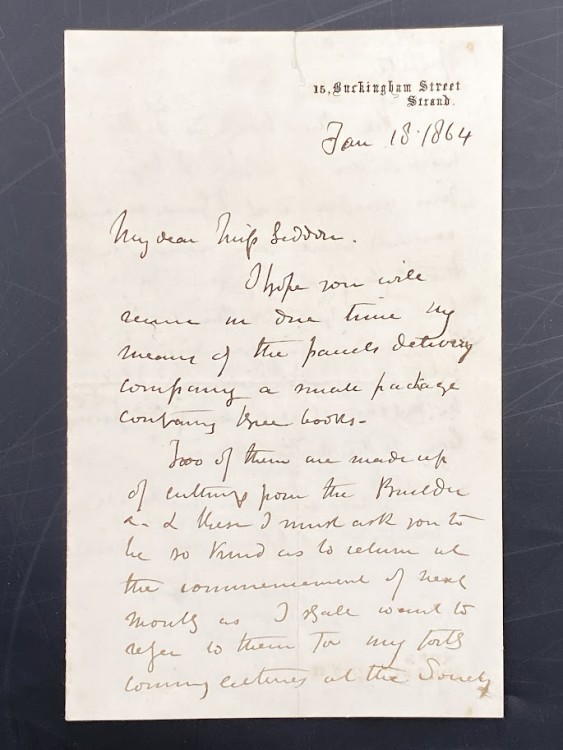 15, Buckingham Street
Strand.
Jan 18. 1864
My dear Miss Seddon.
I hope you will
receive in due time by
means of the parcels delivery
company a small package
containing three books—
Two of them are made up
of cuttings from the Builder
& these I must ask you to
be so kind as to return at
the commencement of next
month as I shall want to
refer to them for my forth
coming lectures at the Society